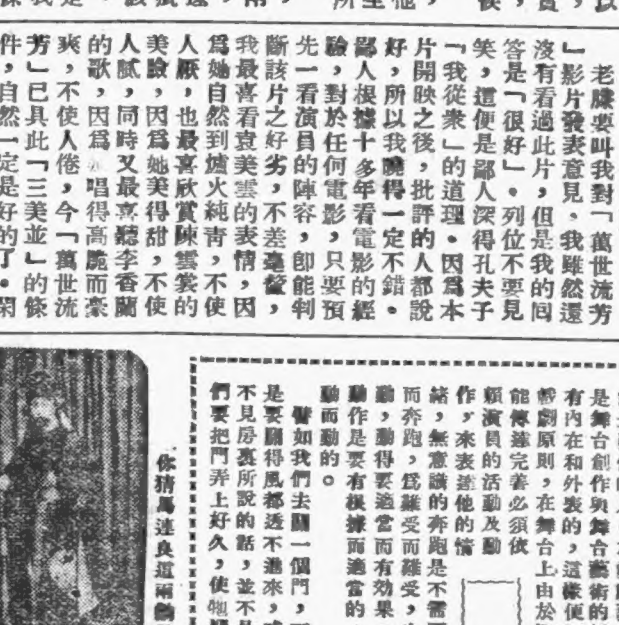 老牒要叫我對「萬世流芳
」影片發表意見。我雖然還
沒有看過此片，但是我的回
答是「很好」。列位不要見
笑，這便是鄙人深得孔夫子
「我從衆」的道理。因爲本
片開映之後，批評的人都說
好，所以我曉得一定不錯。
鄙人根據十多年看電影的經
驗，對於任何電影，只要預
先一看演員的陣容，卽能判
斷該片之好劣，不差毫釐，
我最喜看袁美雲的表情，因
爲她自然到爐火純青，不使
人厭，也最喜欣賞陳雲裳的
美臉，因爲她美得甜，不使
人膩，同時又最喜聽李香蘭
的歌，因爲唱得高脆而豪
爽，不使人倦，今「萬世流
芳」已具此「三美並」的條
件，自然一定是好的了。閑
是舞台創作與舞台藝術的
有內在和外表的，這樣便
戲劇原則，在舞台上由於
能傳達完善必須依
賴演員的活動及動
作，來表達他的情
緒，無意識的奔跑是不需
而奔跑，爲難受而難受，
動，動得要適當而有効果
動作是要有根據而適當的
動而動的。
譬如我們去關一個門，
是要關得風都透不進來，
不見房裏所說的話，並不是
們要把門弄上好久，使
你猜馬連良這兩齣